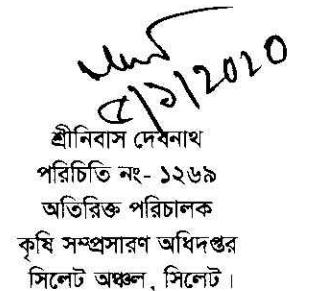 ৫/১/2020
শ্রীনিবাস দেবনাথ
পরিচিতি নং- ১২৬৯
অতিরিক্ত পরিচালক
কৃষি সম্প্রসারণ অধিদপ্তর
সিলেট অঞ্চল, সিলেট।